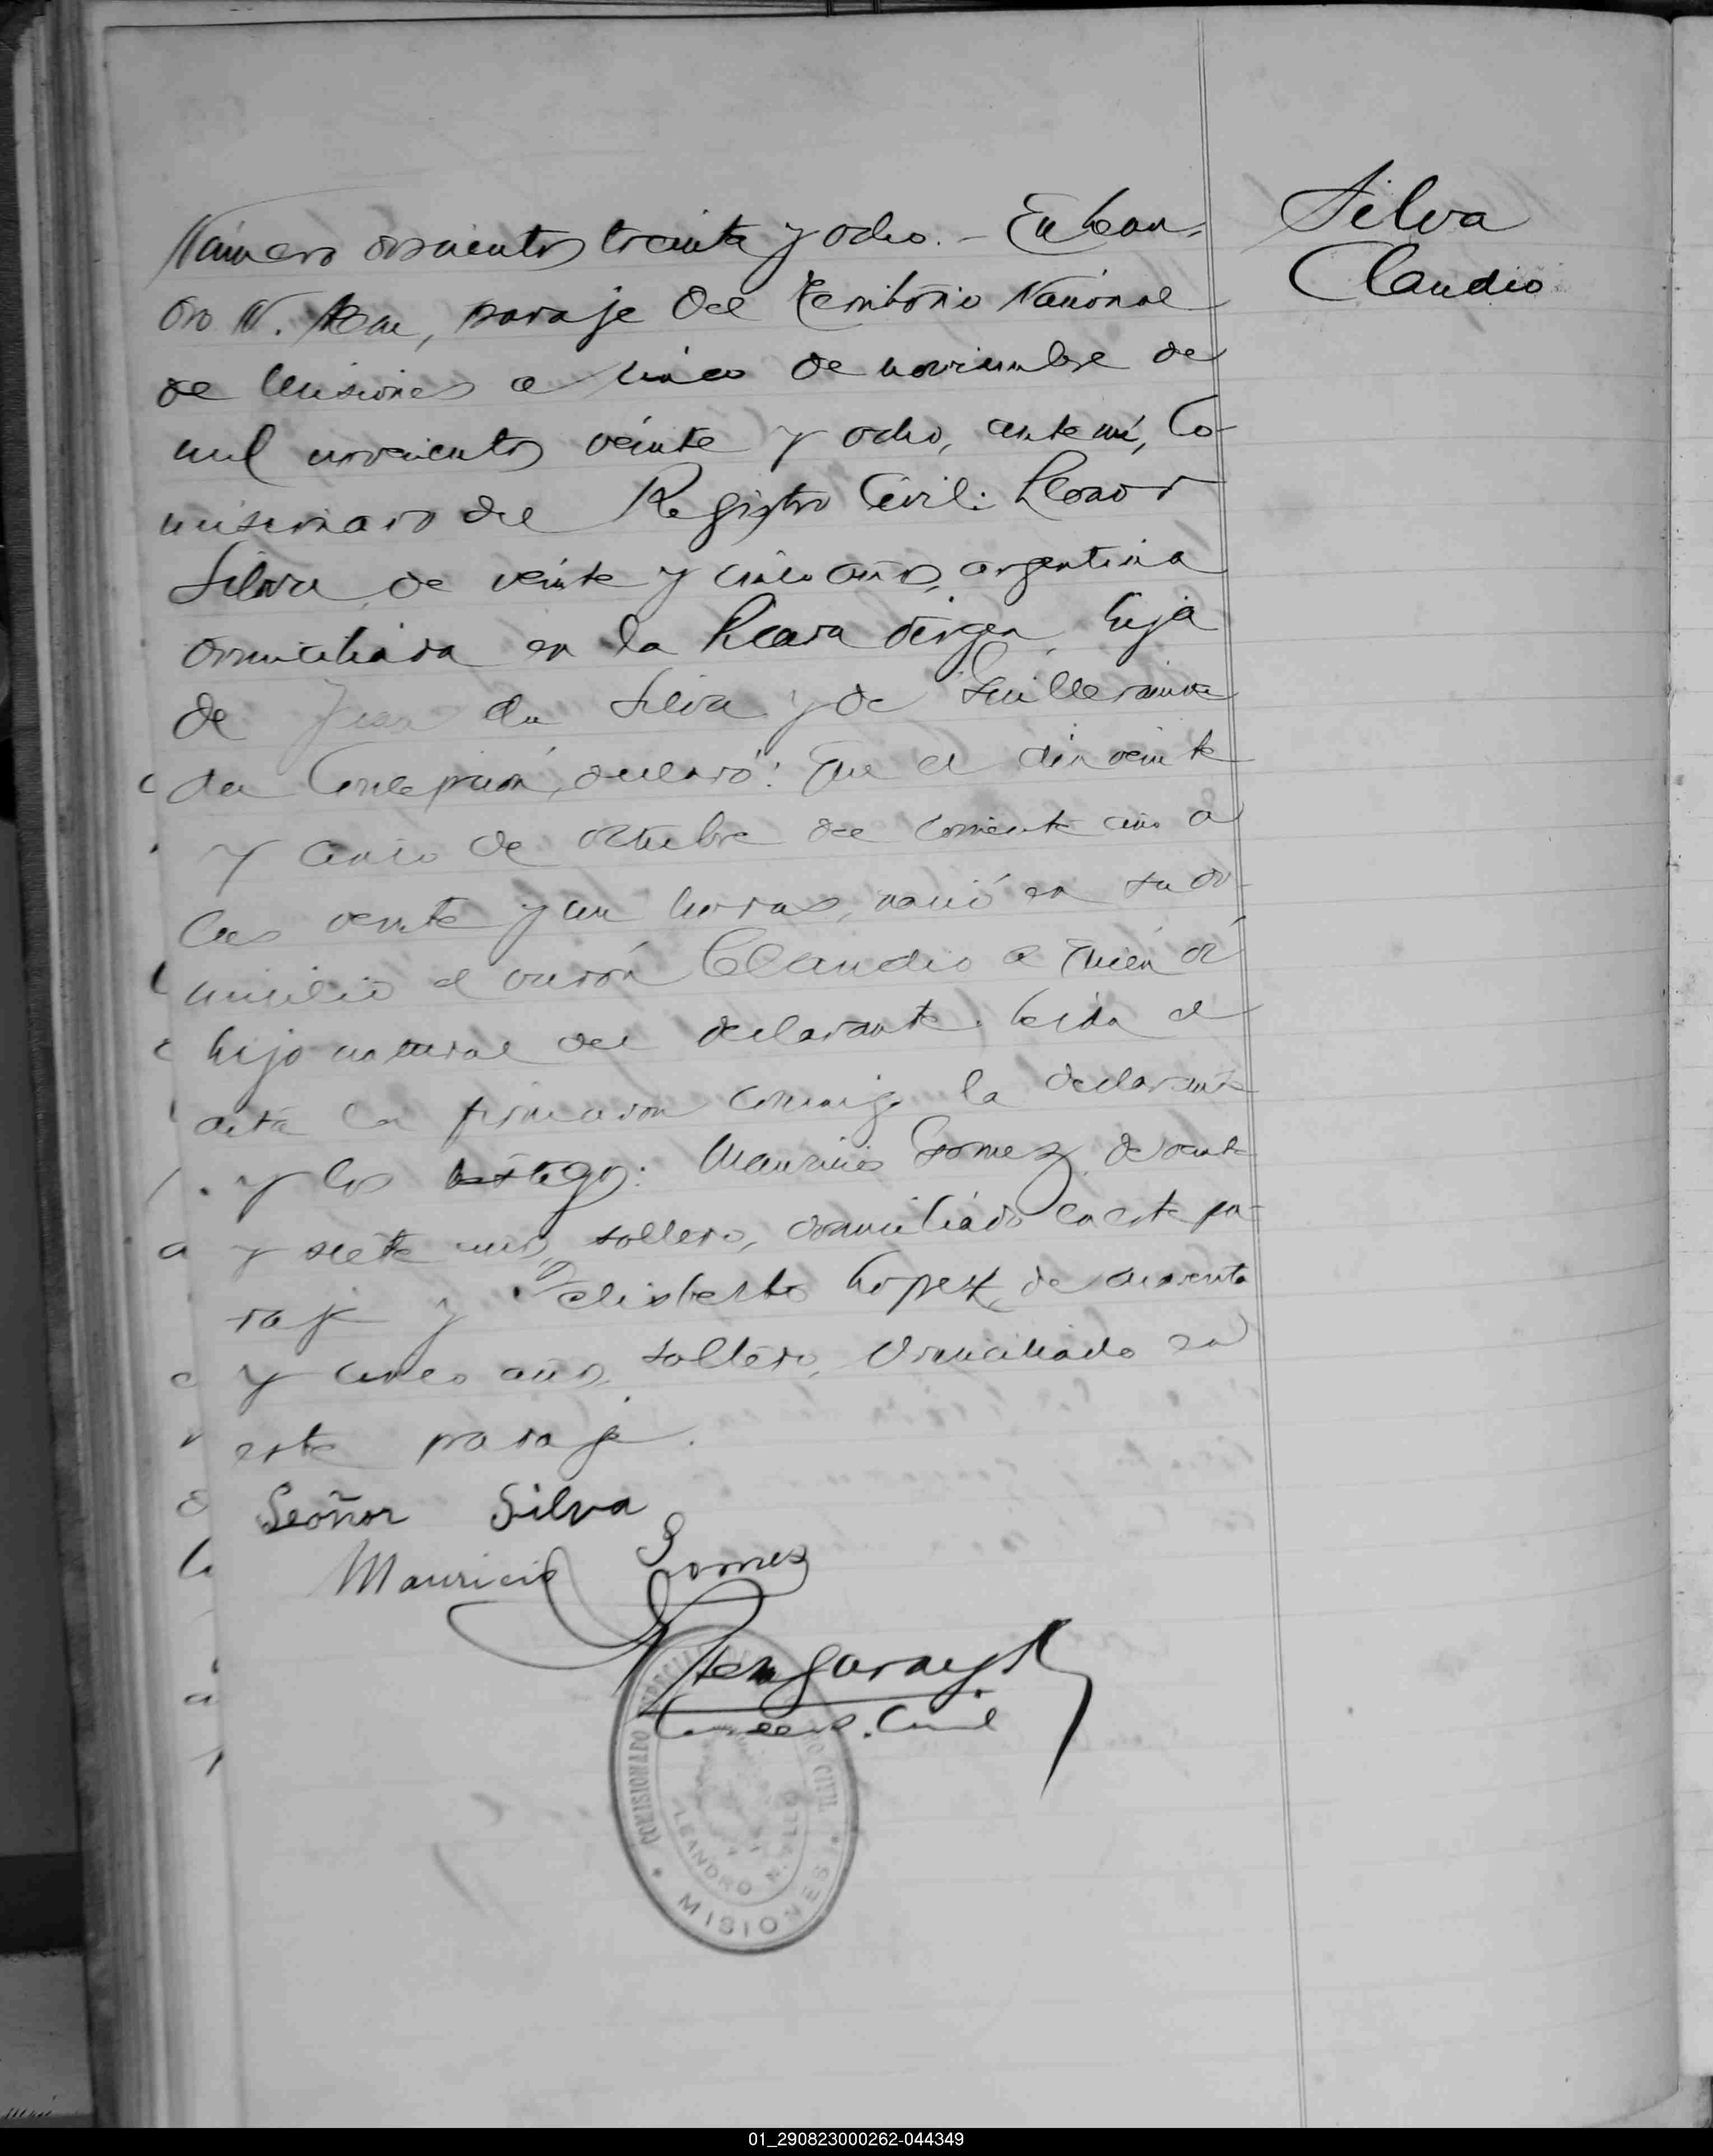 Silva
Claudio
Número doscientos treinta y ocho. – En Lean-
dro N. Alem, paraje del Territorio Nacional
de Misiones a cinco de noviembre de
mil novecientos veinte y ocho, ante mí, Co-
misionado del Registro Civil: Leonor
Silva, de veinte y cinco años, argentina
domiciliada en la Picada Virgen, hija
de Juan da Silva y de Guillermina
da Concepción, declaró: Que el día veinte
y cinco de octubre del corriente año a
las veinte y un horas, nació en su do-
micilio el varón Claudio a quien dá
hijo natural del declarante. Leída el
acta la firmaron conmigo la declarante
y los testigos: Mauricio Gomez, de veinte
y siete años, soltero, domiciliado en este pa-
raje y Felisberto Lopez, de cuarenta
y cinco años, soltero, domiciliado en
este paraje.
Leoñor Silva
Mauricio Gomez
COMISIONADO ESPECIAL CIVIL
LEANDRO N. ALEM
MISIONES
01_290823000262-044349